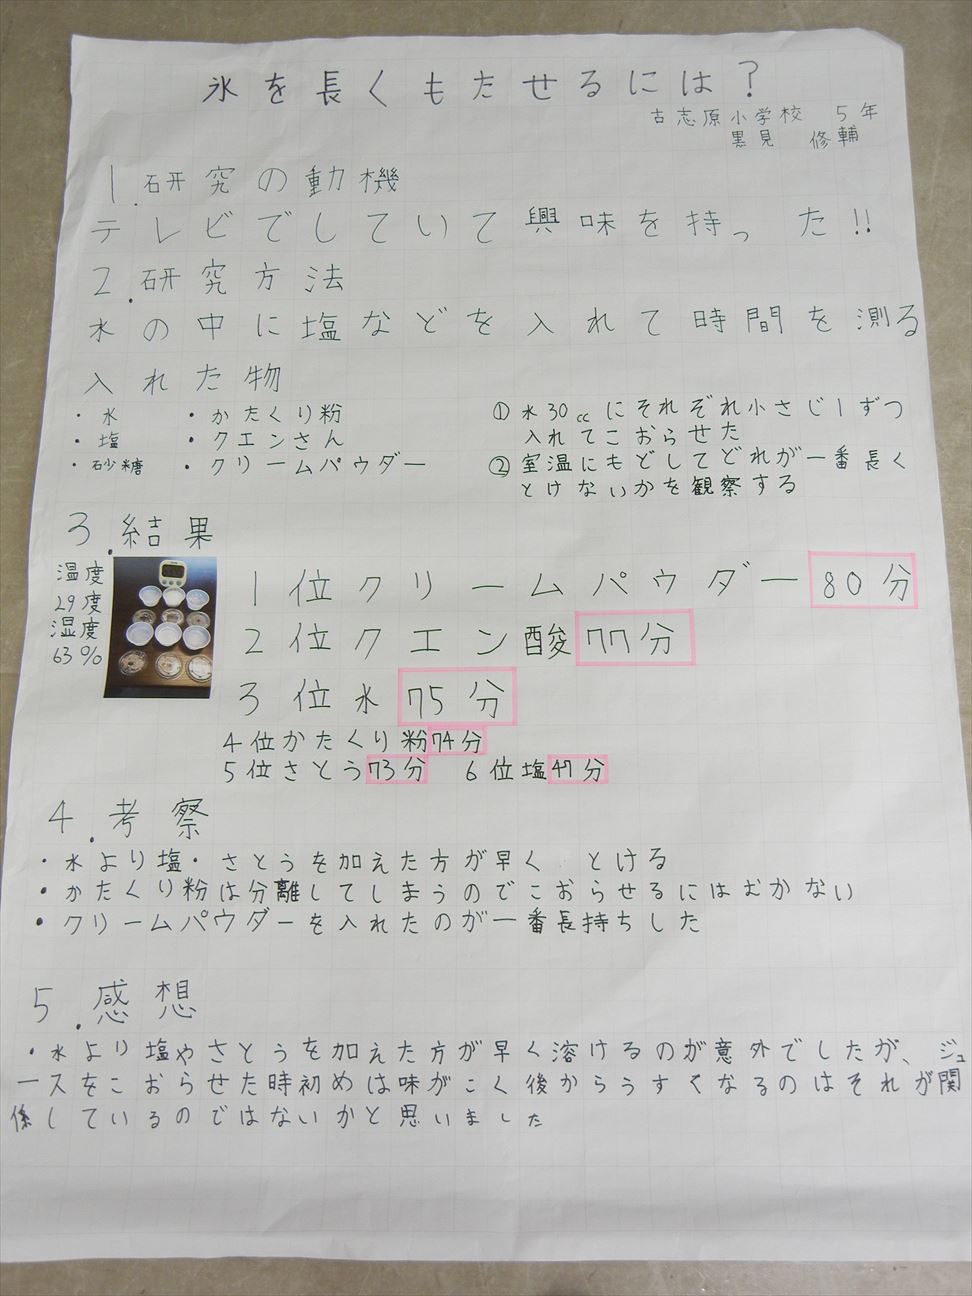 氷を長くもたせるには?
古志原小学校 5年
黒見 修輔
1.研究の動機
テレビでしていて興味を持った!!
2.研究方法
水の中に塩などを入れて時間を測る
入れた物
・水 ・かたくり粉
・塩 ・クエンさん
・砂糖 ・クリームパウダー
①水30ccにそれぞれ小さじ1ずつ
入れてこおらせた
②室温にもどしてどれが一番長く
とけないかを観察する
3.結果
温度
29度
湿度
63%
1位クリームパウダー80分
2位クエン酸77分
3位水75分
4位かたくり粉74分
5位さとう73分 6位塩47分
4.考察
・水より塩・さとうを加えた方が早く とける
・かたくり粉は分離してしまうのでこおらせるにはむかない
・クリームパウダーを入れたのが一番長持ちした
5.感想
・水より塩やさとうを加えた方が早く溶けるのが意外でしたが、ジュ
ースをこおらせた時初めは味がこく後からうすくなるのはそれが関
係しているのではないかと思いました